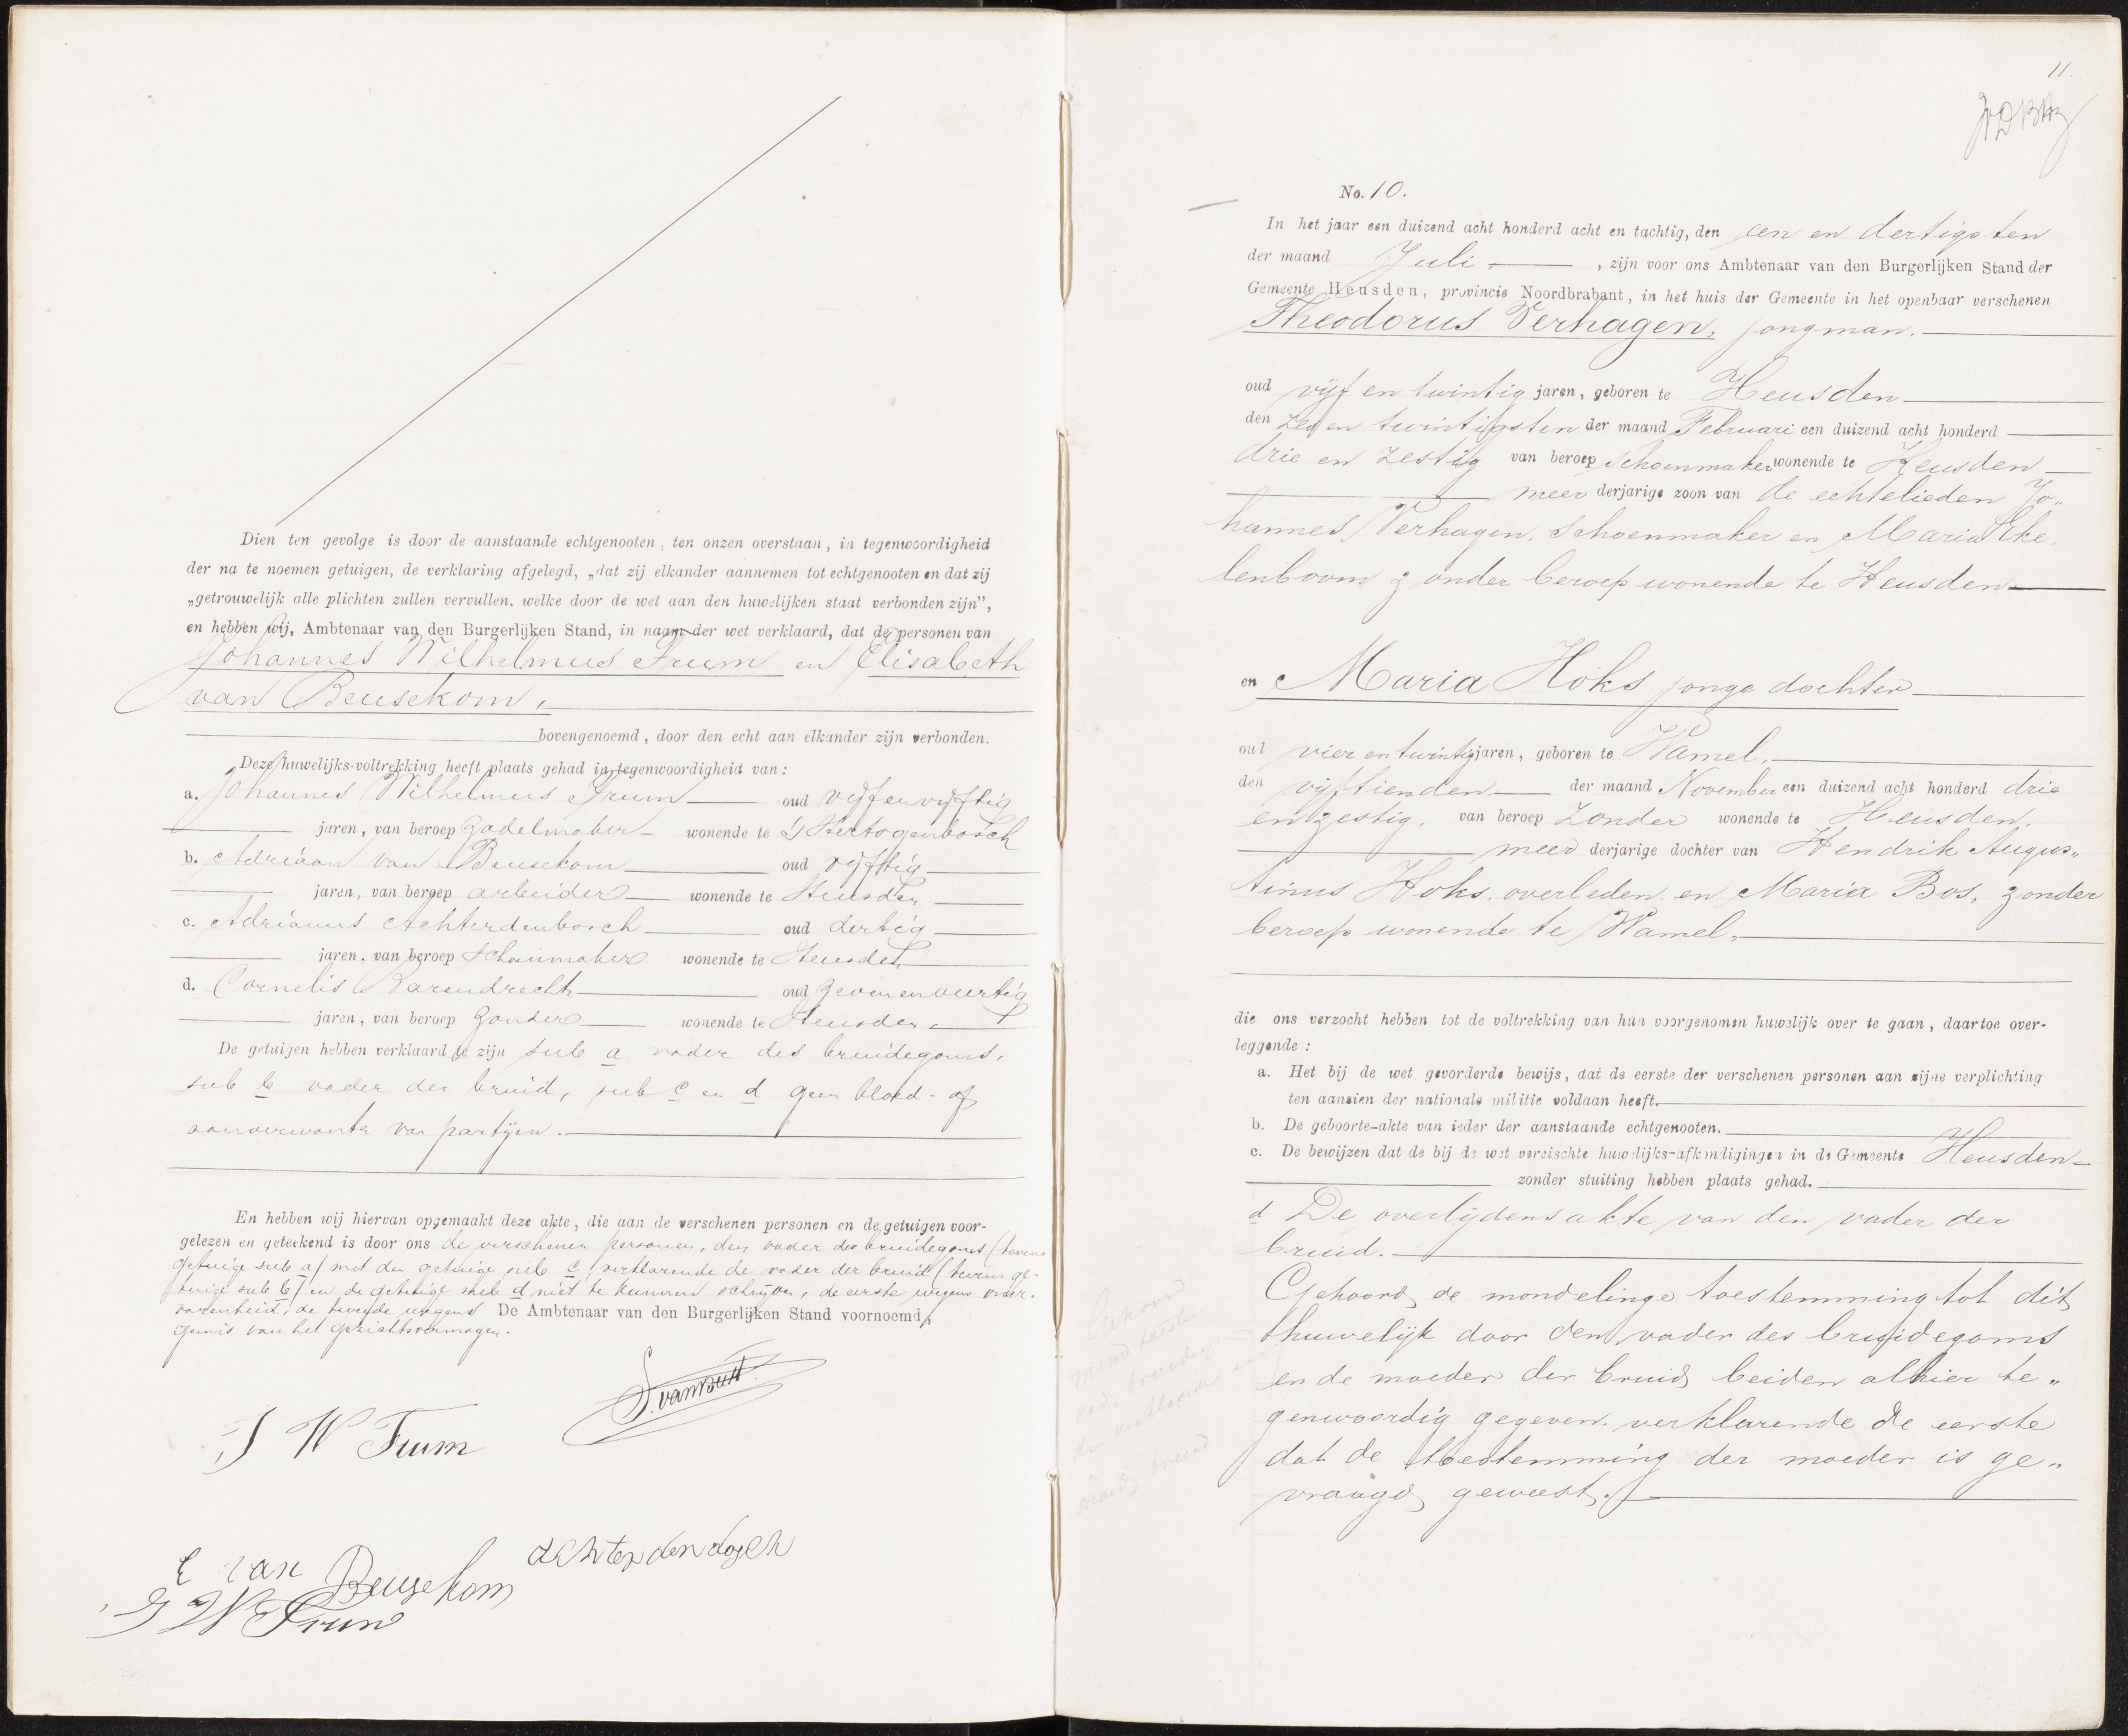 Dien ten gevolge is door de aanstaande echtgenooten, ten onzen overstaan, in tegenwoordigheid
der na te noemen getuigen, de verklaring afgelegd, „dat zij elkander aannemen tot echtgenooten en dat zij
„getrouwelijk alle plichten zullen vervullen. welke door de wet aan den huwelijken staat verbonden zijn”,
en hebben wij, Ambtenaar van den Burgerlijken Stand, in naam der wet verklaard, dat de personen van
Johannes Wilhelmus Frum en Elisabeth
van Beusekom,
bovengenoemd, door den echt aan elkander zijn verbonden.
Deze huwelijks-voltrekking heeft plaats gehad in tegenwoordigheid van:
a. Johannes Wilhelmus Frum oud vijfenvijftig
jaren, van beroep zadelmaker wonende te 's Hertogenbosch
b. Adriaan van Beusekom oud vijftig
jaren, van beroep arbeider wonende te Heusden
c. Adrianus Achterdenbosch oud dertig
jaren, van beroep schoenmaker wonende te Heusden
d. Cornelis Barendrecht oud zevenenveertig
jaren, van beroep zonder wonende te Heusden
De getuigen hebben verklaard te zijn sub a vader des bruidegoms,
sub b vader der bruid, sub c en d geen bloed- of
aanverwante van partijen.
En hebben wij hiervan opgemaakt deze akte, die aan de verschenen personen en de getuigen voor-
gelezen en geteekend is door ons de verschenen personen, den vader des bruidegoms (tevens
getuige sub a) met den getuige sub c, verklarende de vader der bruid (tevens ge-
tuige sub b) en de getuige sub d niet te kunnen schrijven, de eerste wegens oner-
varenheid, de tweede wegens De Ambtenaar van den Burgerlijken Stand voornoemd,
gemis van het gezichtsvermogen.
J W Frum
E van Beusekom
Achterdenbosch
J W Frum
11.
No. 10.
In het jaar een duizend acht honderd acht en tachtig, den een en dertigsten
der maand Juli, zijn voor ons Ambtenaar van den Burgerlijken Stand der
Gemeente Heusden, provincie Noordbrabant, in het huis der Gemeente in het openbaar verschenen
Theodorus Verhagen, jongman.
oud vijf en twintig jaren, geboren te Heusden
den zes en twintigsten der maand Februari een duizend acht honderd
drie en zestig van beroep schoenmaker wonende te Heusden
meer derjarige zoon van de echtelieden Jo„
hannes Verhagen, schoenmaker en Maria Eke
lenboom zonder beroep wonende te Heusden
en Maria Hoks jonge dochter
oud vier en twintig jaren, geboren te Wamel,
den vijftienden der maand November een duizend acht honderd drie
en zestig, van beroep zonder wonende te Heusden,
meer derjarige dochter van Hendrik Augus„
tinus Hoks, overleden en Maria Bos, zonder
beroep wonende te Wamel,
die ons verzocht hebben tot de voltrekking van hun voorgenomen huwelijk over te gaan, daartoe over-
leggende:
a. Het bij de wet gevorderde bewijs, dat de eerste der verschenen personen aan zijne verplichting
ten aanzien der nationale militie voldaan heeft.
b. De geboorte-akte van ieder der aanstaande echtgenooten.
c. De bewijzen dat de bij de wet vereischte huwelijks-afkondigingen in de Gemeente Heusden
zonder stuiting hebben plaats gehad.
d De overlijdens akte van den vader der
bruid.
Gehoord de mondelinge toestemming tot dit
huwelijk door den vader des bruidegoms
en de moeder der bruid beiden alhier te„
genwoordig gegeven, verklarende de eerste
dat de toestemming der moeder is ge„
vraagd geweest.